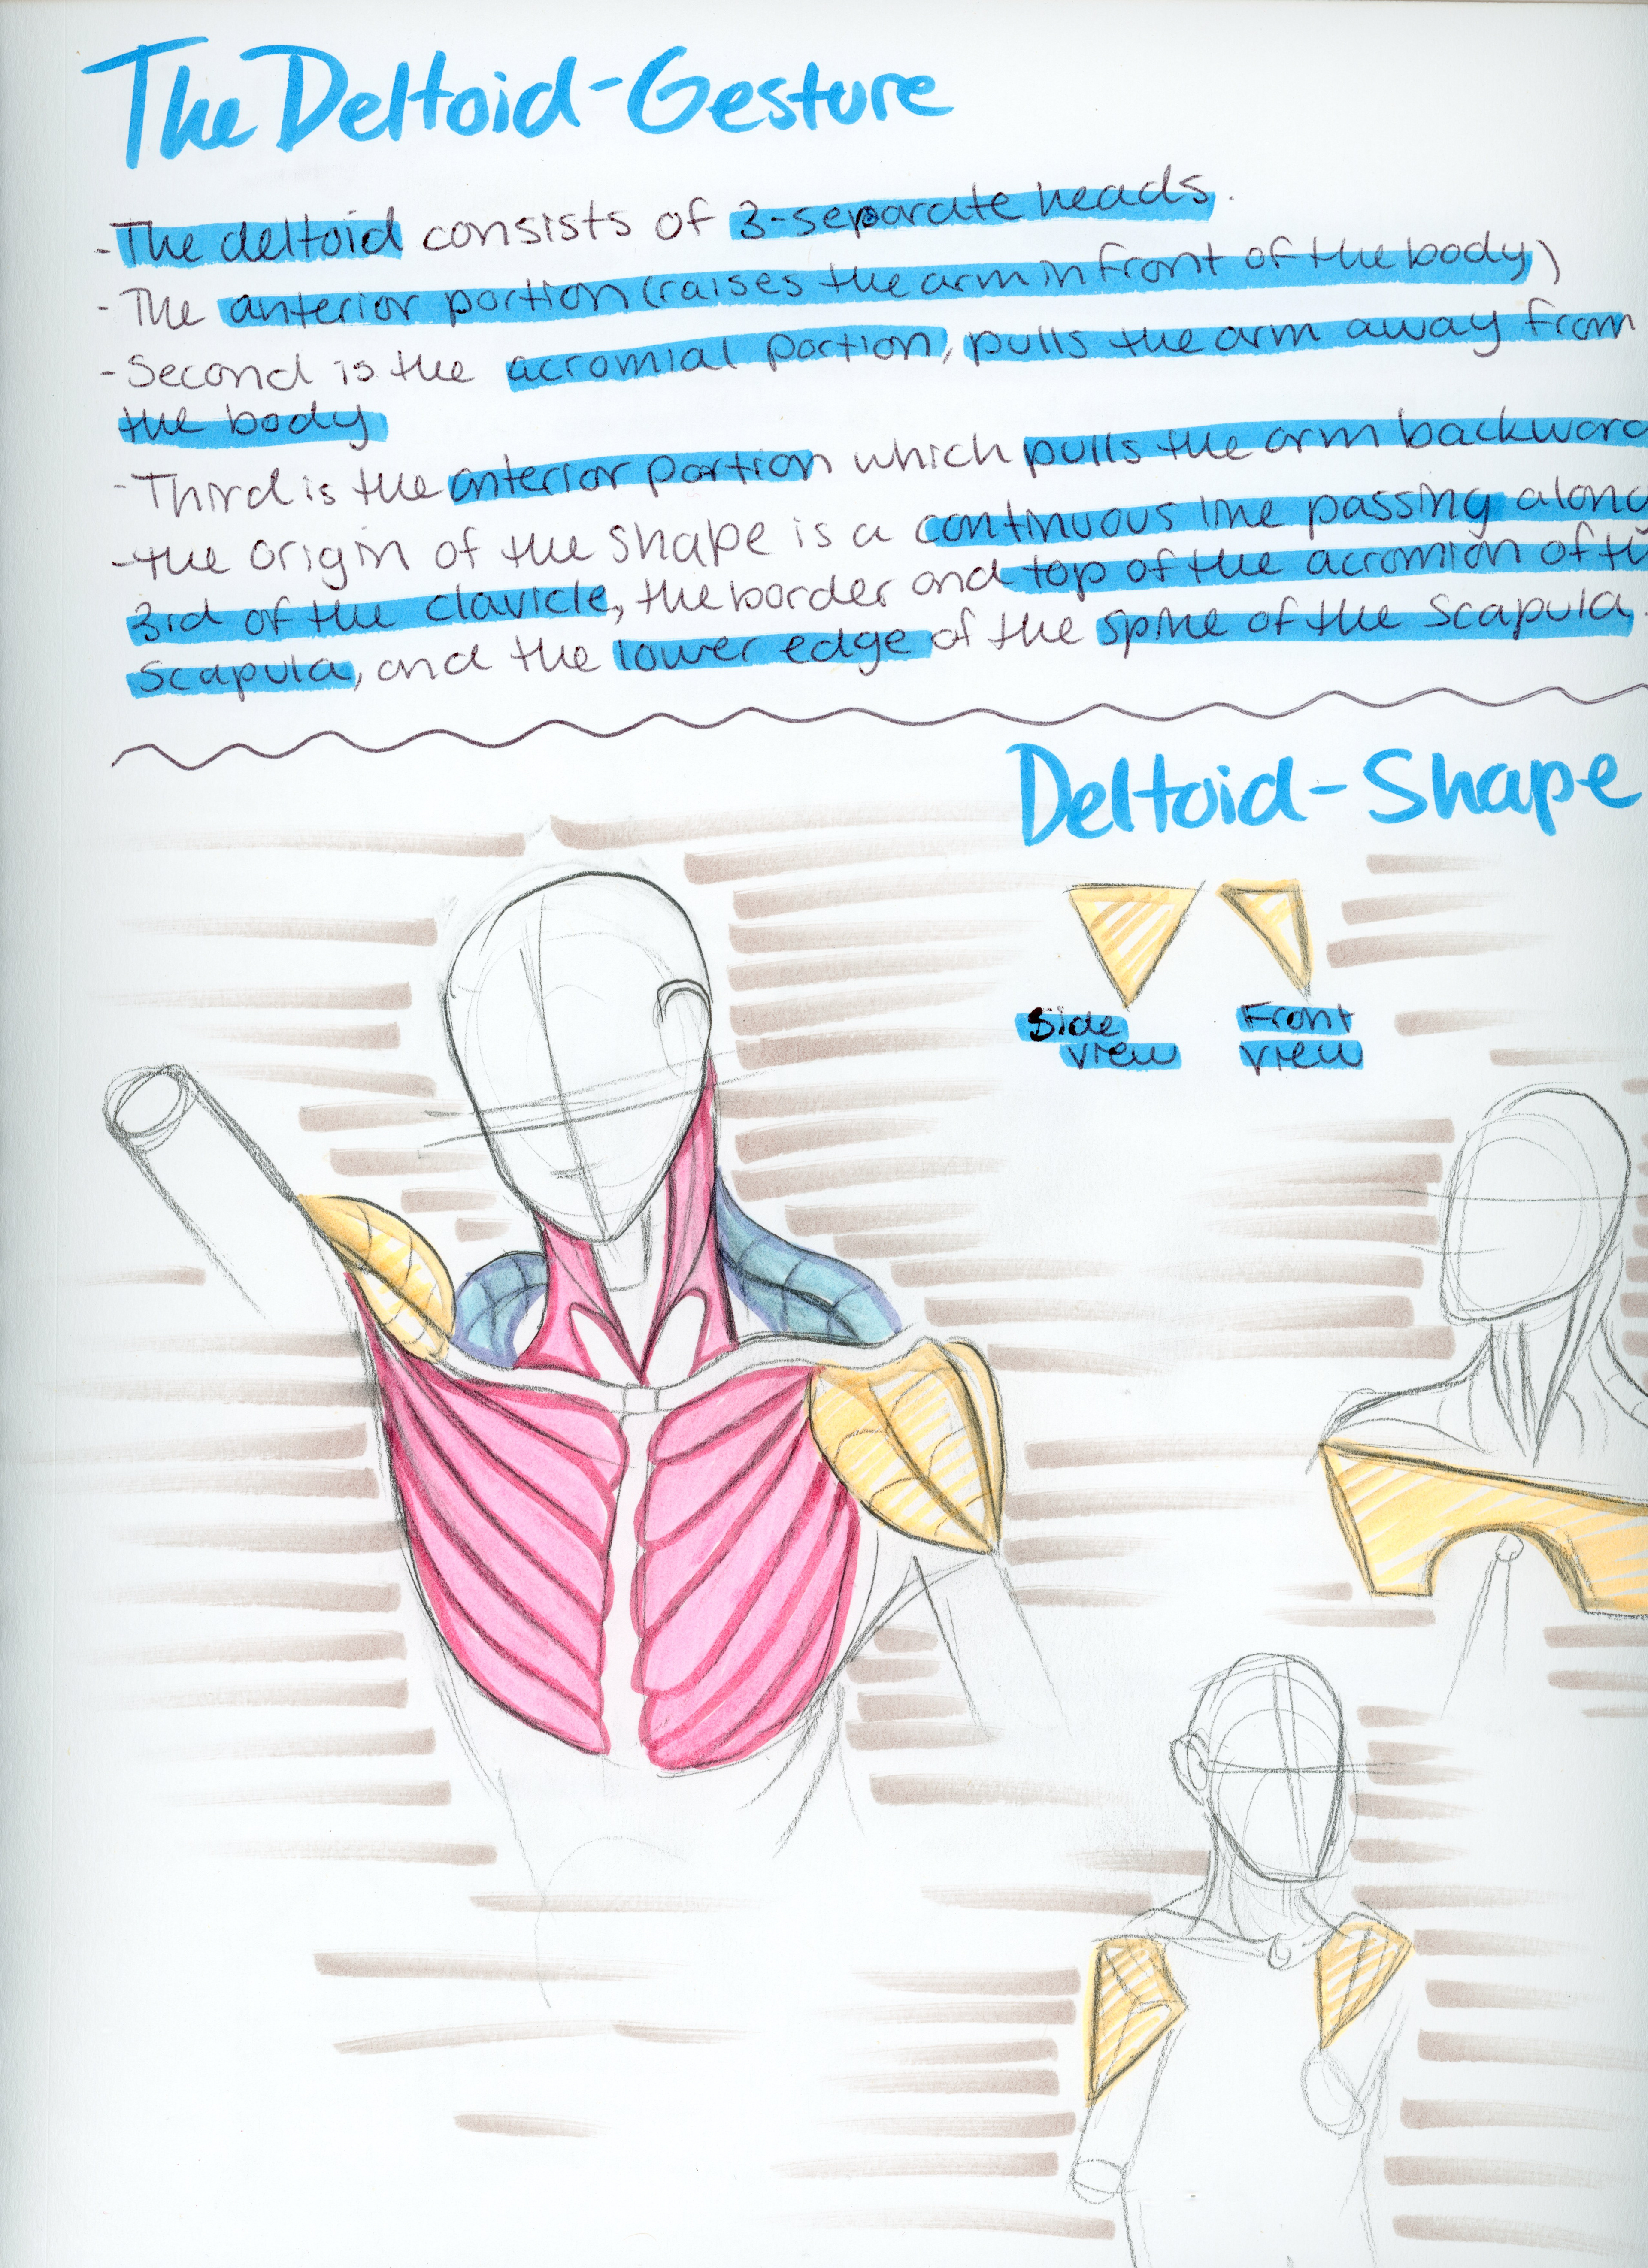 The Deltoid-Gesture
-The deltoid consists of 3-separate heads.
-The anterior portion (raises the arm in front of the body)
-Second is the acromial portion, pulls the arm away from
the body
-Third is the anterior portion which pulls the arm backward
-the origin of the shape is a continuous line passing along
3rd of the clavicle, the border and top of the acromion of th
Scapula, and the lower edge of the spine of the Scapula.
Deltoid-Shape
Side Front
view view